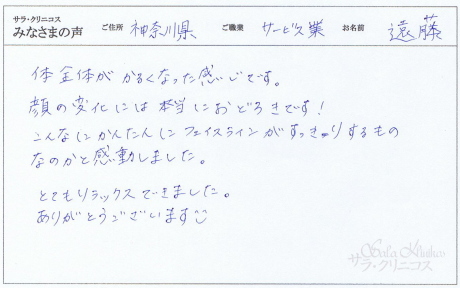 サラ・クリニコス
みなさまの声 ご住所 神奈川県 ご職業 サービス業 お名前 遠藤
体全体がかるくなった感じです。
顔の変化には本当におどろきです!
こんなにかんたんにフェイスラインがすっきりするもの
なのかと感動しました。
とてもリラックスできました。
ありがとうございます
サラ・クリニコス